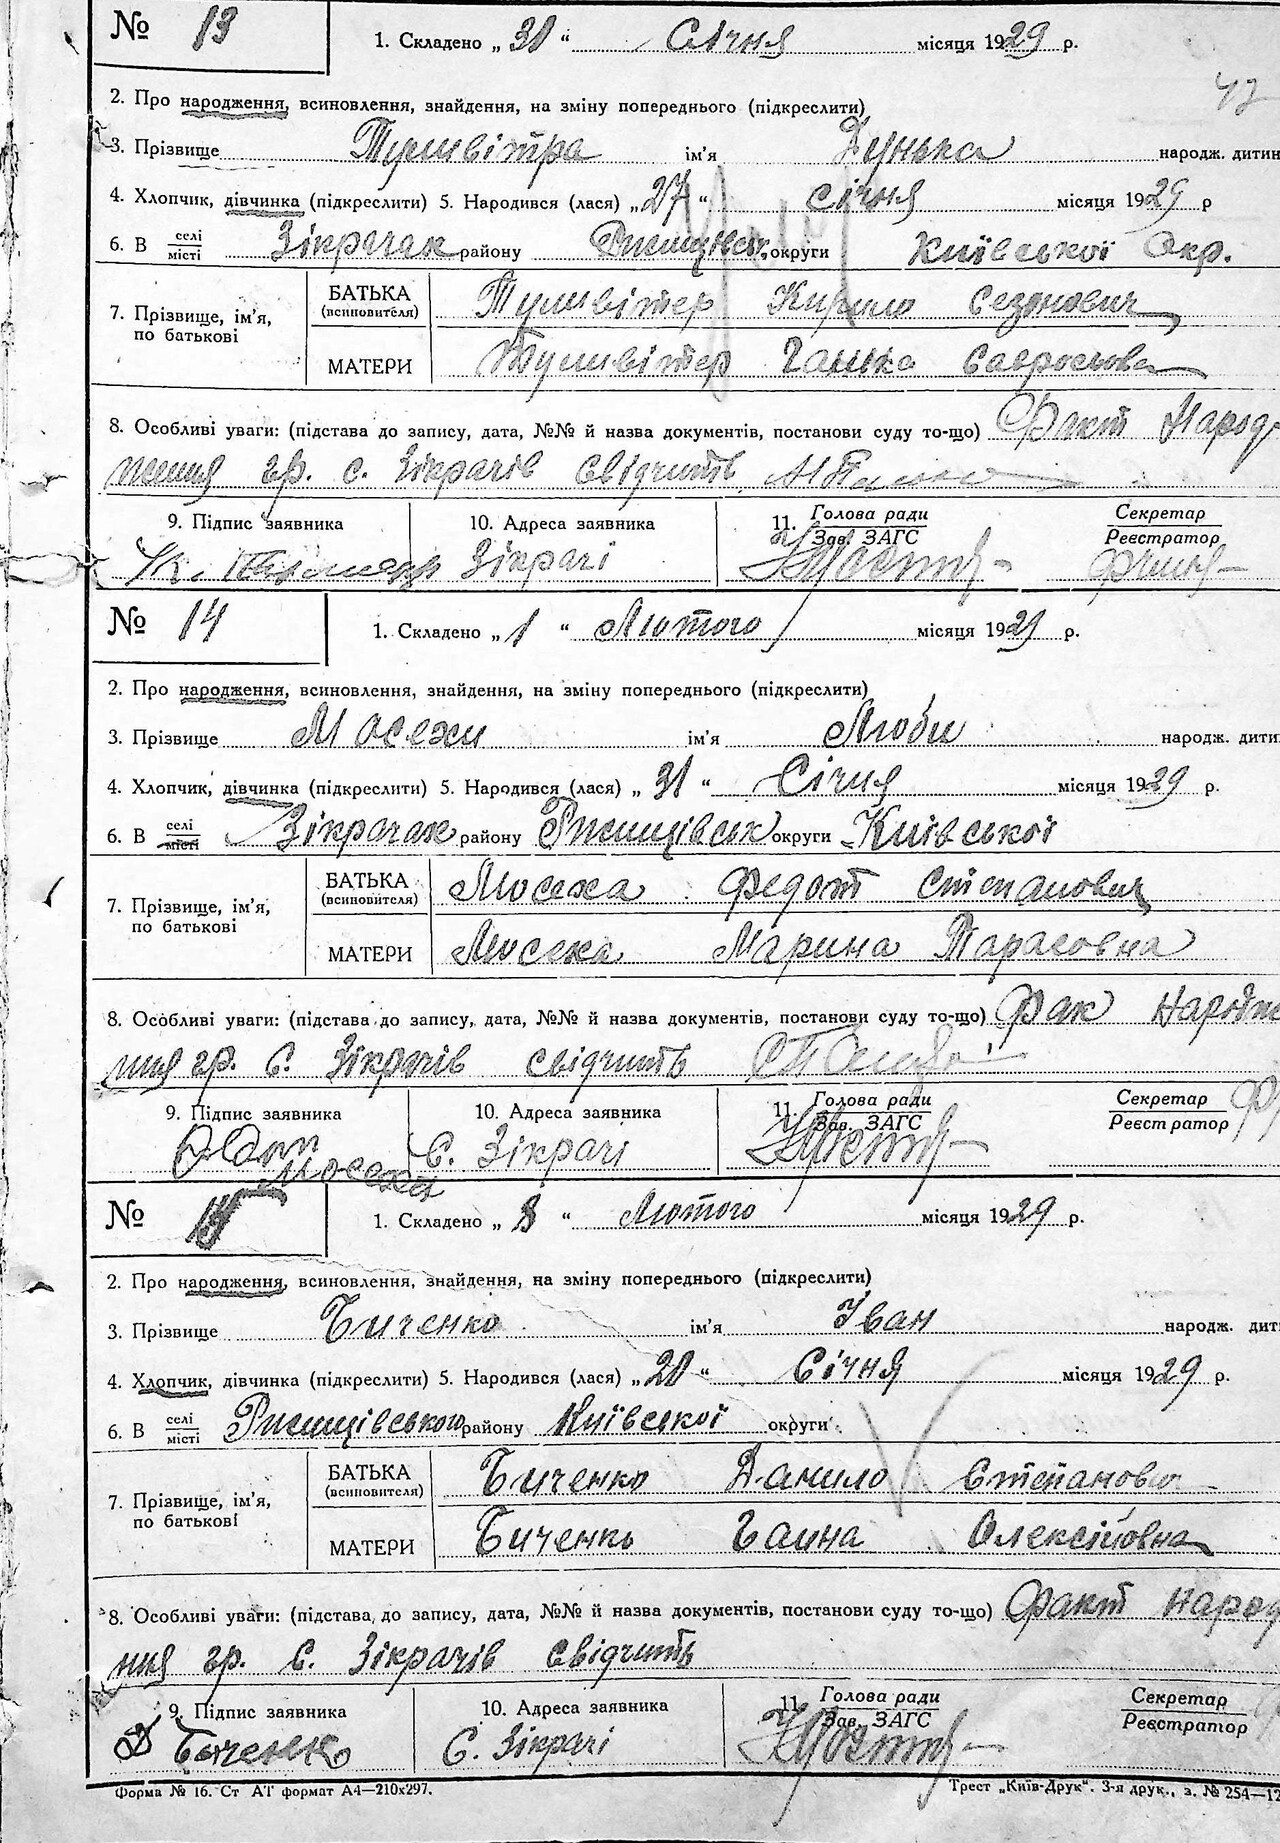 № 13 1. Складено „ 31 “ Січня місяця 1929 р.
42
2. Про народження, всиновлення, знайдення, на зміну попереднього (підкреслити)
3. Прізвище Тумвітра ім'я Дунька народж. дитин
4. Хлопчик, дівчинка (підкреслити) 5. Народився (лася) „ 27 “ січня місяця 1929 р
6. В селі місті Зікрачах району Ржищівськ. округи Київської Окр.
7. Прізвище, ім'я, по батькові
БАТЬКА (всиновителя) Тумвітер Кирило Сезонович
МАТЕРИ Тумвітер Ганька
8. Особливі уваги: (підстава до запису, дата, №№ й назва документів, постанови суду то-що) Факт Народ
ження гр. с. Зікрачів свідчить
9. Підпис заявника 10. Адреса заявника 11. Голова ради Зав. ЗАГС Секретар Реєстратор
Зікрачі
№ 14 1. Складено „ 1 “ Лютого місяця 1929 р.
2. Про народження, всиновлення, знайдення, на зміну попереднього (підкреслити)
3. Прізвище Мосехи ім'я Люби народж. дити
4. Хлопчик, дівчинка (підкреслити) 5. Народився (лася) „ 31 “ Січня місяця 1929 р.
6. В селі місті Зікрачах району Ржищівськ округи Київської
7. Прізвище, ім'я, по батькові
БАТЬКА (всиновителя) Мосеха Федот Степанович
МАТЕРИ Мосеха Марина Тарасовна
8. Особливі уваги: (підстава до запису, дата, №№ й назва документів, постанови суду то-що) Фак народже
ния гр. С. Зікрачів свідчить
9. Підпис заявника 10. Адреса заявника 11. Голова ради Зав. ЗАГС Секретар Реєстратор
Мосеха С. Зікрачі
№ 15 1. Складено „ 8 “ Лютого місяця 1929 р.
2. Про народження, всиновлення, знайдення, на зміну попереднього (підкреслити)
3. Прізвище Биченко ім'я Іван народж. дит
4. Хлопчик, дівчинка (підкреслити) 5. Народився (лася) „ 20 “ Січня місяця 1929 р.
6. В селі місті Ржищівського району Київської округи
7. Прізвище, ім'я, по батькові
БАТЬКА (всиновителя) Биченко Данило Степанови
МАТЕРИ Биченко Ганна Олексійовна
8. Особливі уваги: (підстава до запису, дата, №№ й назва документів, постанови суду то-що) Факт народ
ния гр. С. Зікрачів свідчить
9. Підпис заявника 10. Адреса заявника 11. Голова ради Зав. ЗАГС Секретар Реєстратор
Д Биченко С. Зікрачі
Форма № 16. Ст АТ формат А4—210х297. Трест „Київ-Друк“. 3-я друк., з. № 254—12